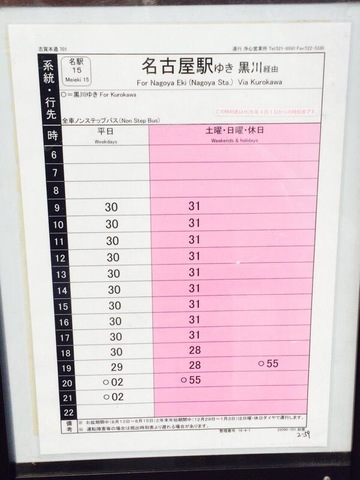 志賀本通 701
運行 浄心営業所
系統・行先
名駅
15
Meieki 15
名古屋駅ゆき 黒川経由
For Nagoya Eki (Nagoya Sta.) Via Kurokawa
○=黒川ゆき For Kurokawa
全車ノンステップバス(Non Step Bus)
時 平日 土曜・日曜・休日
Weekdays Weekends & holidays
6
7
8
9 30 31
10 30 31
11 30 31
12 30 31
13 30 31
14 30 31
15 30 31
16 30 31
17 30 31
18 30 28
19 29 28 ○55
20 ○02 ○55
21 ○02
22
備考
2-39